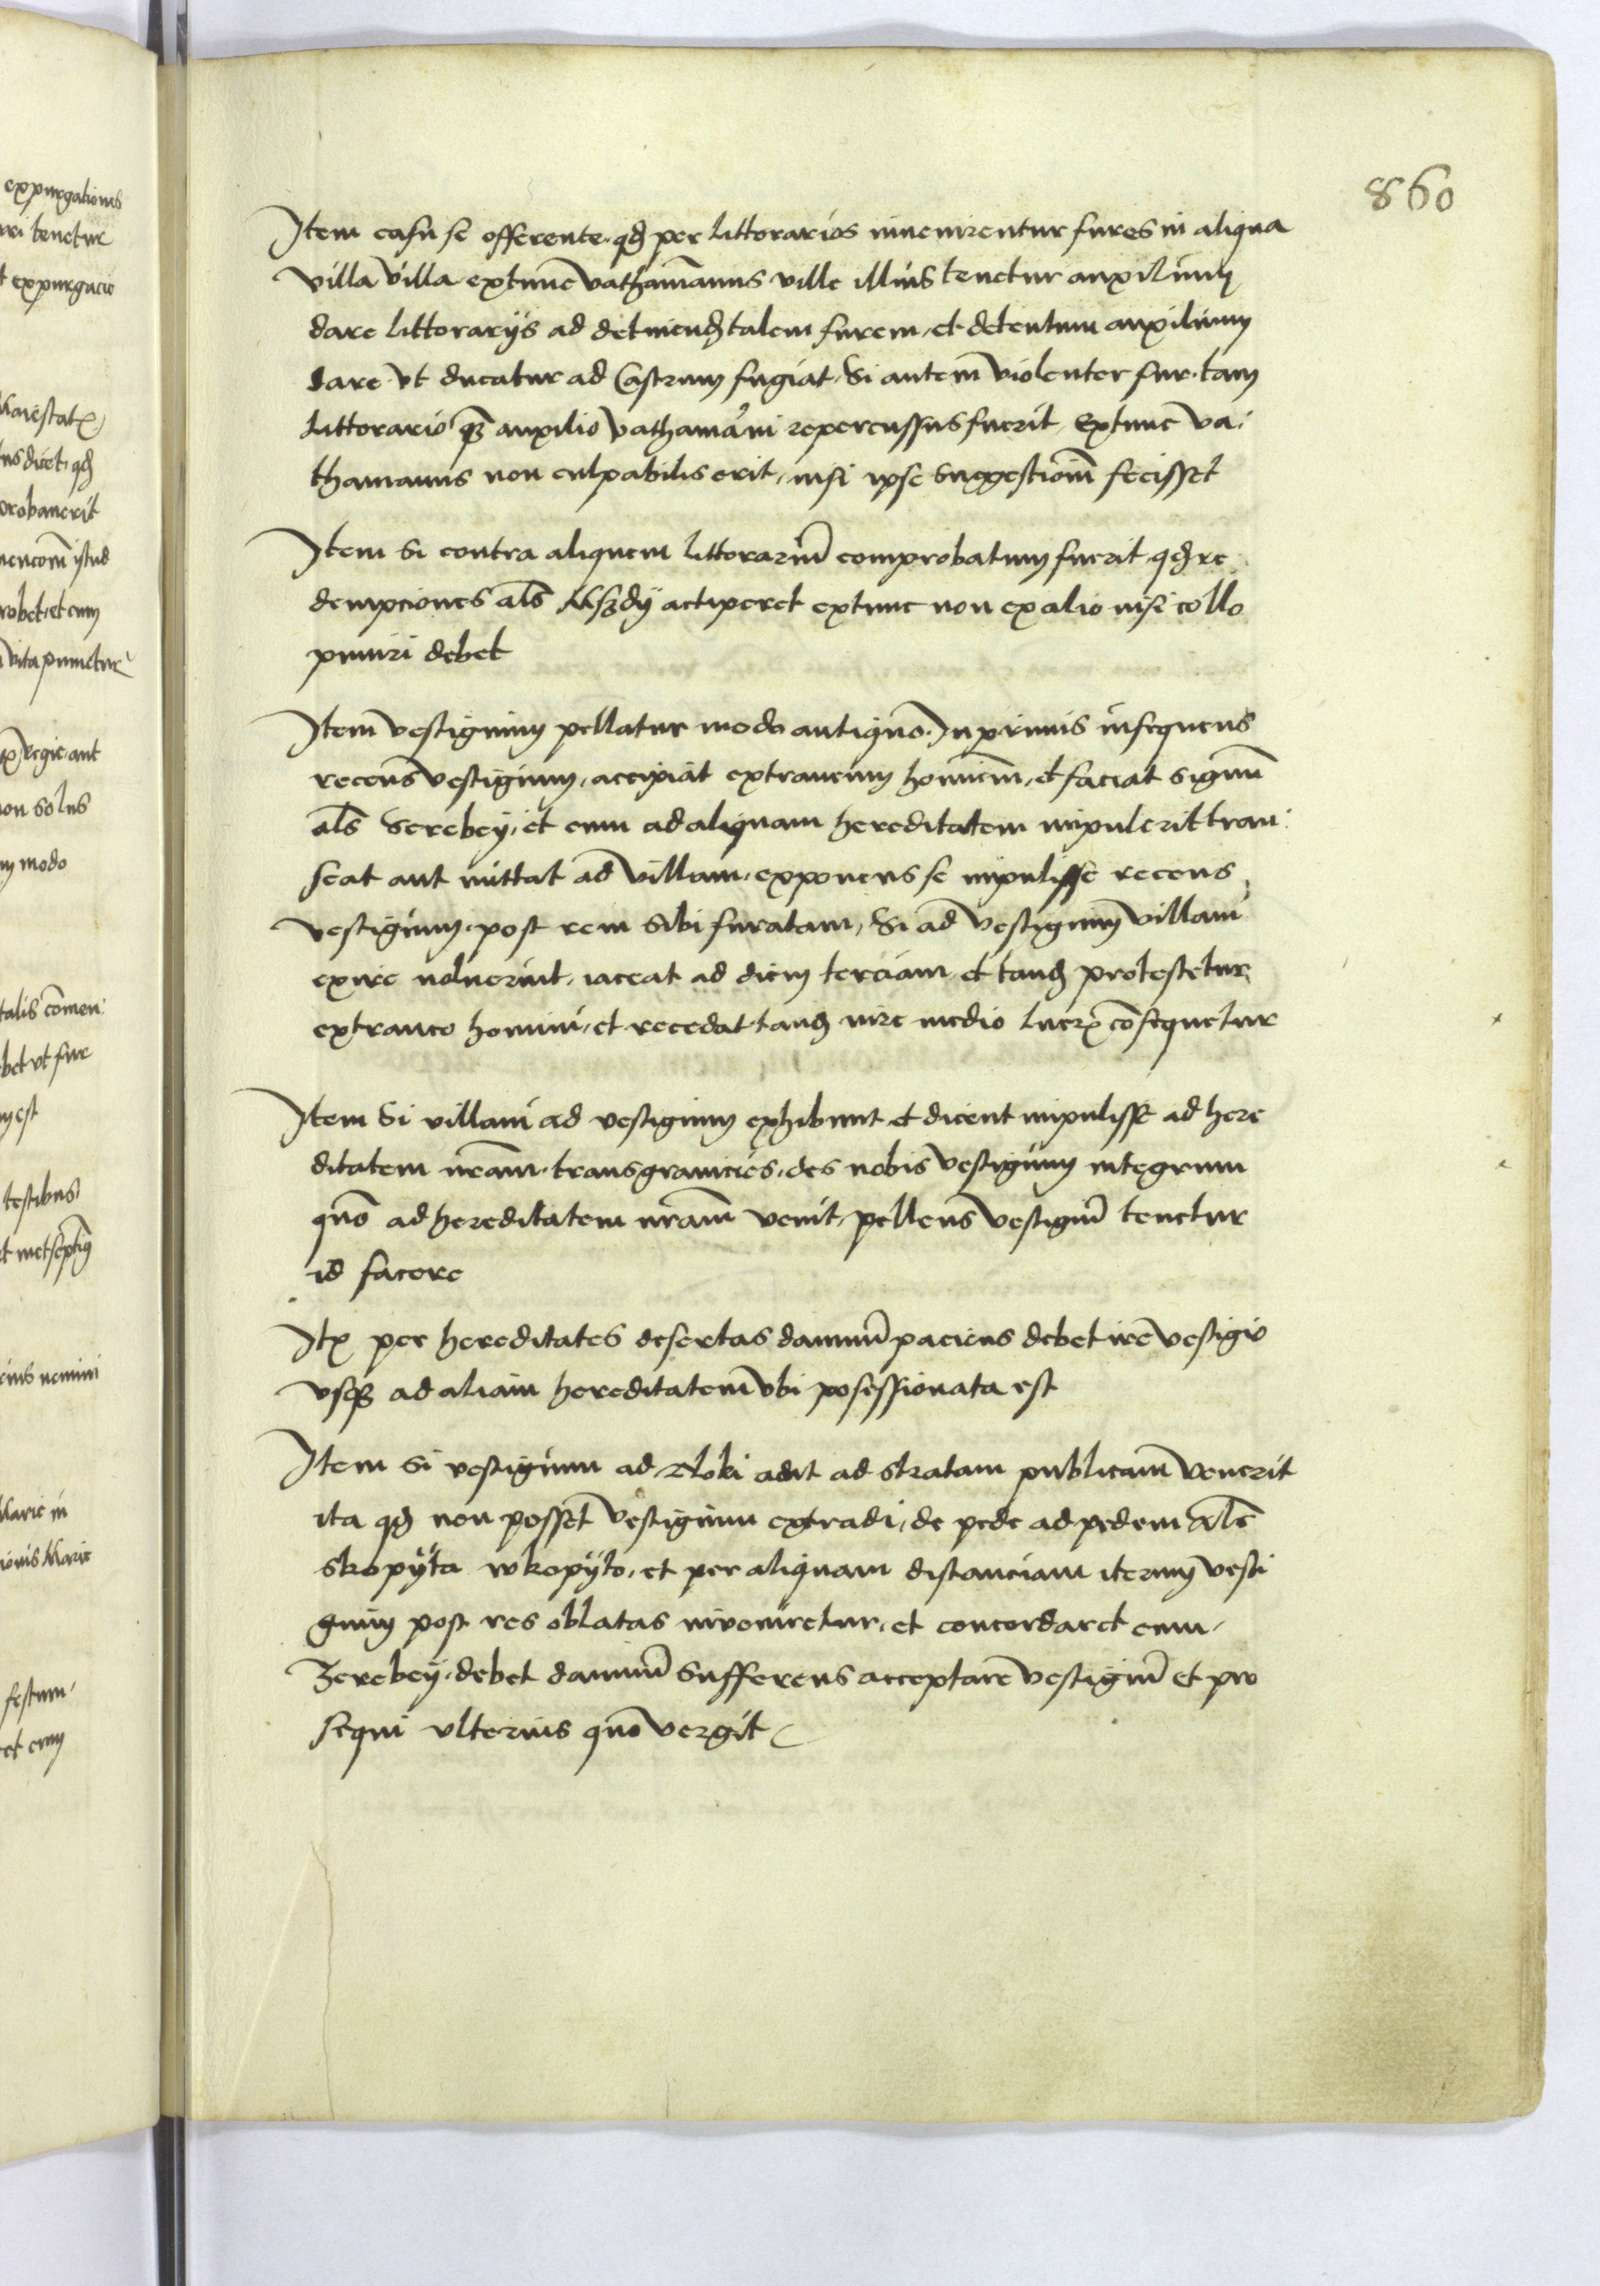 860
Item casu se offerente qđ per littorarios invenirentur fures in aliqua
villa villa extunc vathamānus ville illius tenetur auxilium
dare littorarÿs ad detinenđ talem furem, et detentum auxilium
dare vt ducatur ad Castrum fugiat, Si autem violenter fur tam
littorario qȝ auxilio vathamāni repercussus fuerit, Extunc va
thamanus non culpabilis erit, nisi ipse Suggestionē fecisset
Item Si contra aliquem littorariū comprobatum fuerit qđ re
dempciones als Mszdÿ acciperet extunc non ex alio nisi collo
puniri debet
Item vestigium pellatur modo antiquo. In primis insequens
recens vestigium, accipiat extraneum hominem, et faciat signū
als Serebeÿ, et cum ad aliquam hereditatem inpulerit tran
seat aut mittat ad villam, exponens se inpulisse recens
vestigium, post rem Sibi furatam, Si ad vestigium villani
exire noluerint, iaceat ad diem terciam, et tanđ protestetur
extraneo homini, et recedat tanđ iure medio lucrū cōsequetur
Item Si villani ad vestigium exhibunt et dicent inpulisse ad here
ditatem nrām, trans granicies, des nobis vestigium integrum
quo ad hereditatem nrām venit, pellens vestigiū tenetur
id facere
Itē per hereditates desertas damnū paciens debet ire vestigio
vsqȝ ad aliam hereditatem vbi possessionata est
Item Si vestigium ad adit ad stratam publicam venerit
ita qđ non posset vestigium extradi, de pede ad pedem Als
skopÿta wkopÿto, et per aliquam distanciam iterum vesti
gium post res oblatas inveniretur, et concordaret cum
Zerebeÿ, debet damnū Sufferens acceptare vestigiū et pro
sequi vlterius quo vergit
expurgationis
tenetur
expurgacio
dicet, qđ
probauerit
istud
et cum
vita punietur
Regie aut
non solus
modo
talis cōmen
vt fur
est
testibus
nemini
in
Marie
festum
et cum